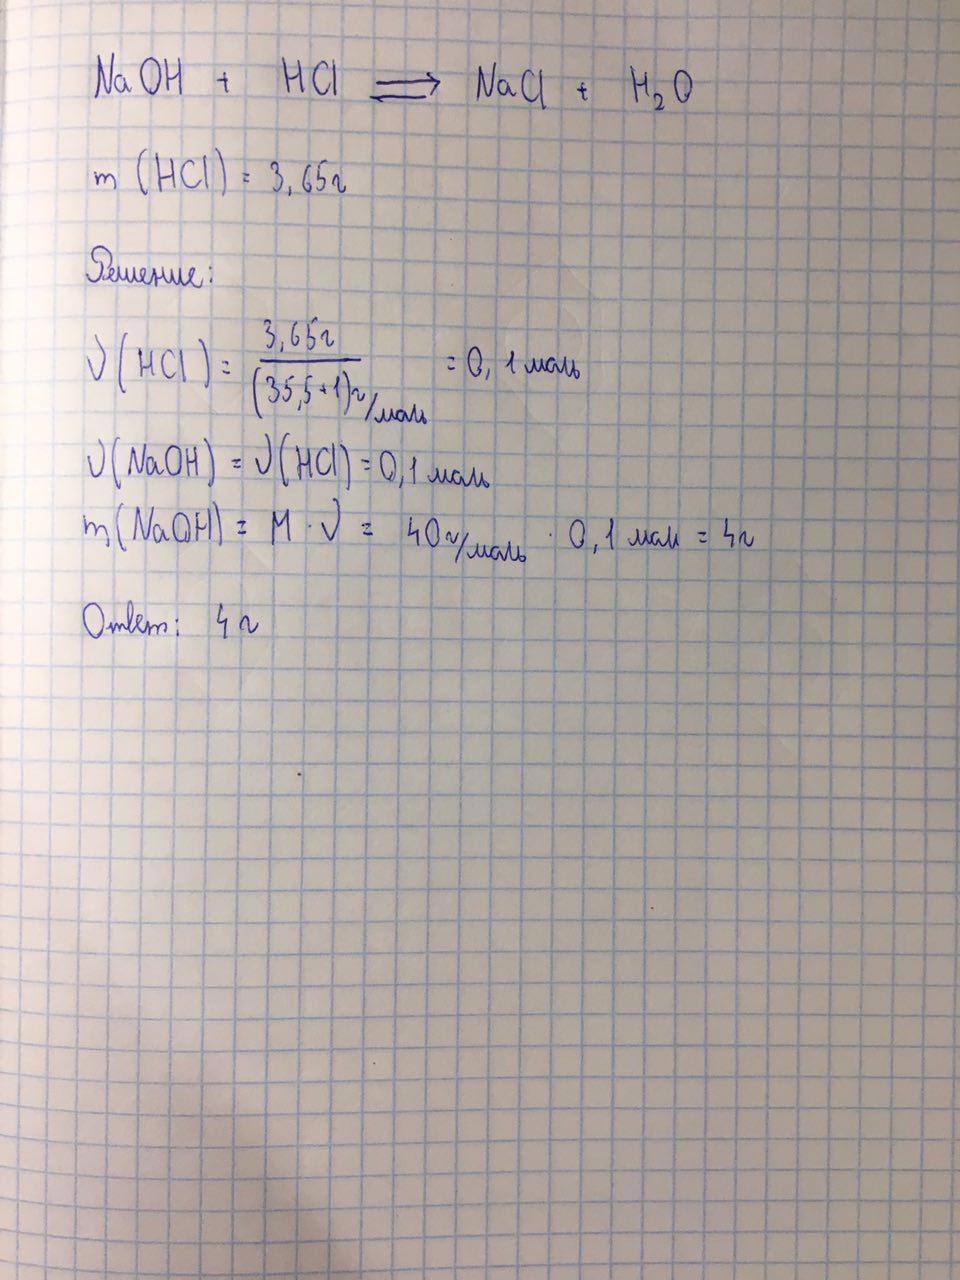 NaOH + HCl ⇌ NaCl + H₂O
m (HCl) = 3,65г
Решение:
ν(HCl) = 3,65г / (35,5+1)г/моль = 0,1 моль
ν(NaOH) = ν(HCl) = 0,1 моль
m(NaOH) = M · ν = 40г/моль · 0,1 моль = 4г
Ответ: 4 г